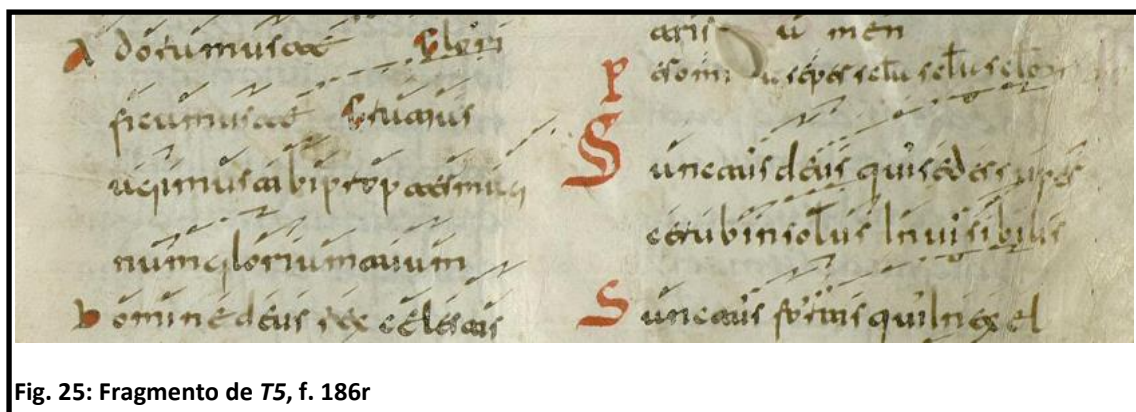 Adoramus te Glori
ficamus te Gratias
agimus tibi propter mag
nam gloriam tuam
Domine deus rex celestis
men
Sanctus deus qui sedes super
cerubin solus Inuisibilis
Sanctus fortis qui In excel
Fig. 25: Fragmento de T5, f. 186r